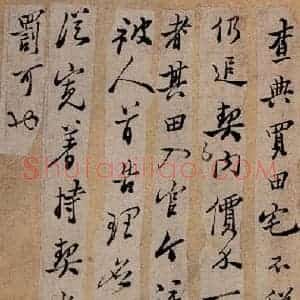 查典買田宅不稅
仍追契內價不一
者其田入官今
被人首告理
從寬著持契
罰可也
Shufazidian.COM